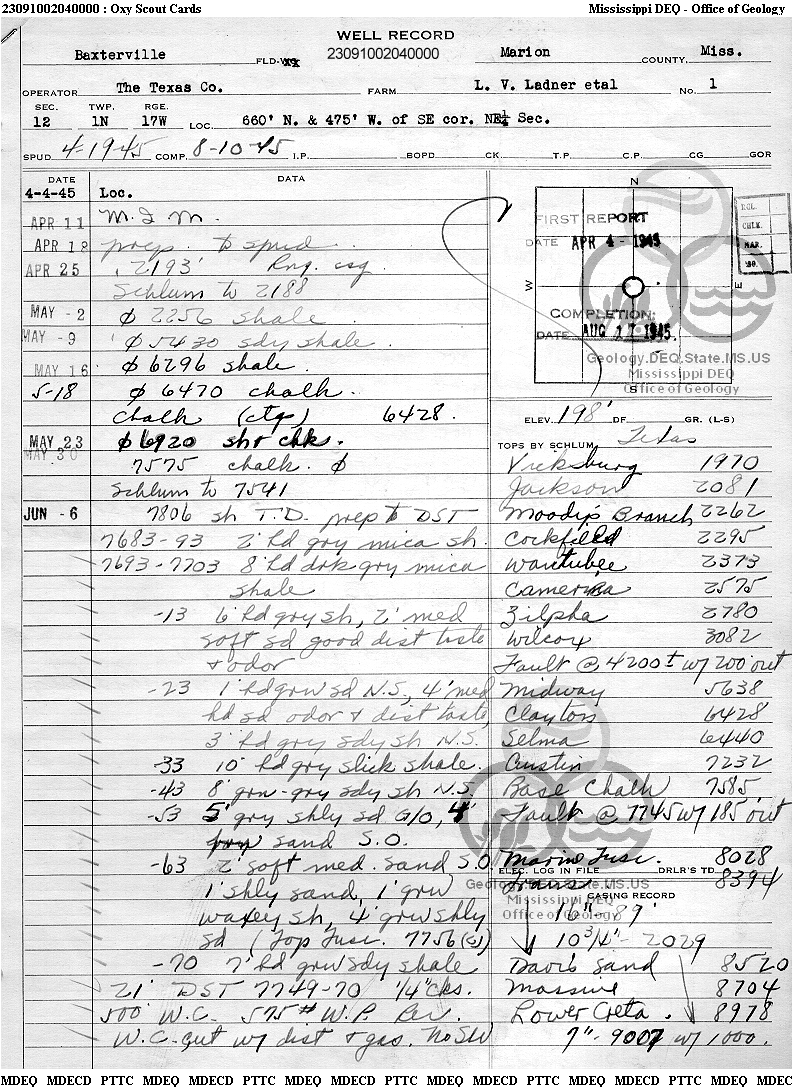 23091002040000 : Oxy Scout Cards
Mississippi DEQ - Office of Geology
WELL RECORD
Baxterville FLD-
23091002040000
Marion COUNTY, Miss.
OPERATOR The Texas Co. FARM L. V. Ladner etal No. 1
SEC. TWP. RGE.
12 1N 17W LOC. 660' N. & 475' W. of SE cor. NE¼ Sec.
SPUD 4-1945 COMP. 8-10-45 I.P. BOPD CK. T.P. C.P. CG GOR
DATE DATA
4-4-45 Loc.
APR 11 M.I.M.
APR 18 prep. to spud
APR 25 2193' Rng. csg.
Schlum to 2188
MAY -2 ϕ 2256 shale
MAY -9 ϕ 5430 sdy shale
MAY 16 ϕ 6296 shale
5-18 ϕ 6470 chalk
Chalk (ctgs) 6428.
MAY 23 ϕ 6920 sh chks.
MAY 30 7575 chalk. ϕ
Schlum to 7541
JUN -6 7806 sh T.D. prep to DST
7683-93 2' hd gry mica sh.
7693-7703 8' hd drk gry mica
shale
-13 6' hd gry sh, 2' med
soft sd good dist taste
& odor
-23 1' hd grn sd N.S, 4' med
hd sd odor & dist taste,
3' hd gry sdy sh N.S.
-33 10' hd gry slick shale.
-43 8' grn-gry sdy sh N.S.
-53 5' gry shly sd G/O, 4'
sand S.O.
-63 2' soft med. sand S.O.
1' shly sand, 1' grn
waxey sh, 4' grn shly
sd (Top Tusc. 7756 (EL)
-70 7' hd grn sdy shale
21' DST 7749-70 ¼" cks.
500' W.C. 575# W.P. Rec.
W.C. cut w/ dist & gas. No SW
N
W
E
S
FIRST REPORT
DATE APR 4 - 1945
COMPLETION:
DATE AUG 17 1945.
CHLK.
MAR.
Geology.DEQ.State.MS.US
Mississippi DEQ
Office of Geology
ELEV. 198' DF GR. (L-S)
TOPS BY SCHLUM. Texas
Vicksburg 1970
Jackson 2081
Moodys Branch 2262
Cockfield 2295
Wautubee 2373
Camerina 2575
Zilpha 2780
Wilcox 3082
Fault @ 4200± w/ 200' out
Midway 5638
Clayton 6428
Selma 6440
Austin 7232
Base Chalk 7585
Fault @ 7745 w/ 185' out
Marine Tusc. 8028
ELEC. LOG IN FILE DRLR'S TD
8394
Geology.DEQ.State.MS.US
CASING RECORD
Mississippi DEQ
Office of Geology
16" - 89'
10¾" - 2029
Davis Sand 8520
Massive 8704
Lower Creta. 8978
7" - 9007 w/ 1000.
MDEQ MDECD PTTC MDEQ MDECD PTTC MDEQ MDECD PTTC MDEQ MDECD PTTC MDEQ MDECD PTTC MDEQ MDECD